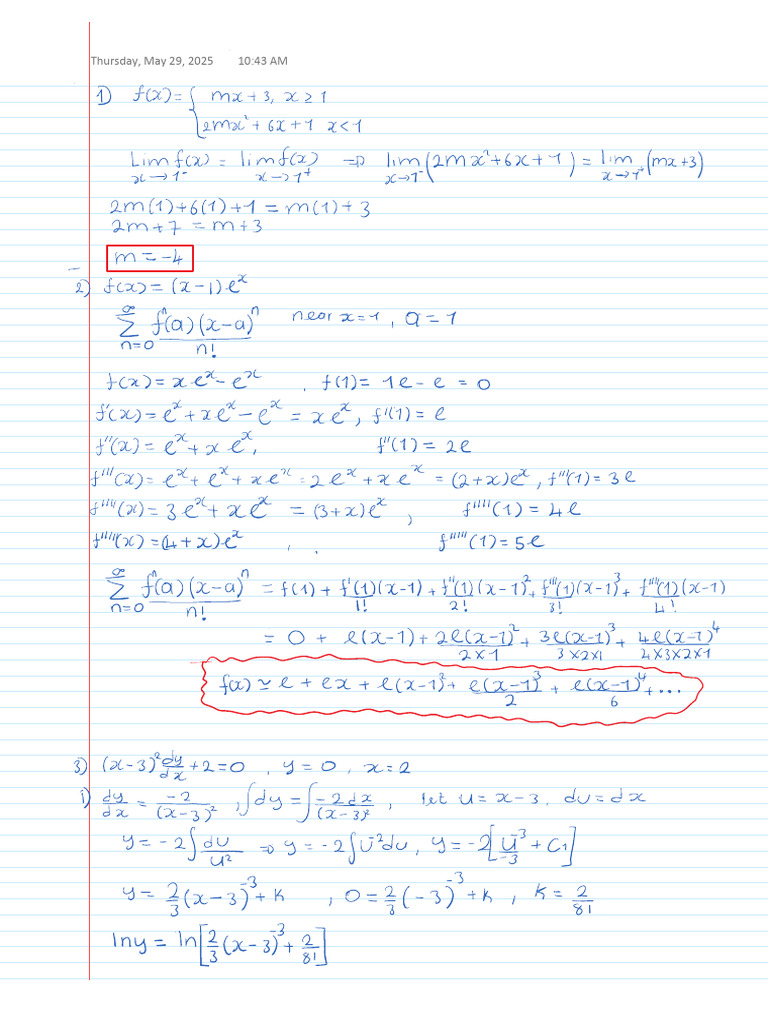 Thursday, May 29, 2025 10:43 AM
1) f(x) = { mx + 3, x ≥ 1
2mx² + 6x + 1 x < 1
Lim f(x) = lim f(x) ⇒ lim (2mx² + 6x + 1) = lim (mx + 3)
x→1⁻ x→1⁺ x→1⁻ x→1⁺
2m(1) + 6(1) + 1 = m(1) + 3
2m + 7 = m + 3
m = -4
2) f(x) = (x-1)eˣ
∞ ∑ n=0 fⁿ(a)(x-a)ⁿ / n! near x = 1, a = 1
f(x) = xeˣ - eˣ, f(1) = 1e - e = 0
f'(x) = eˣ + xeˣ - eˣ = xeˣ, f'(1) = e
f''(x) = eˣ + xeˣ, f''(1) = 2e
f'''(x) = eˣ + eˣ + xeˣ = 2eˣ + xeˣ = (2+x)eˣ, f'''(1) = 3e
f''''(x) = 3eˣ + xeˣ = (3+x)eˣ, f''''(1) = 4e
f'''''(x) = (4+x)eˣ, . f'''''(1) = 5e
∞ ∑ n=0 fⁿ(a)(x-a)ⁿ / n! = f(1) + f'(1)(x-1) / 1! + f''(1)(x-1)² / 2! + f'''(1)(x-1)³ / 3! + f''''(1)(x-1) / 4!
= 0 + e(x-1) + 2e(x-1)² / 2×1 + 3e(x-1)³ / 3×2×1 + 4e(x-1)⁴ / 4×3×2×1
f(x) ≃ e + ex + e(x-1)² + e(x-1)³ / 2 + e(x-1)⁴ / 6 + ...
3) (x-3)² dy/dx + 2 = 0, y = 0, x = 2
i) dy/dx = -2 / (x-3)², ∫dy = ∫ -2dx / (x-3)², let u = x-3. du = dx
y = -2 ∫ du / u² ⇒ y = -2 ∫ u⁻² du, y = -2 [ u⁻³ / -3 + C₁ ]
y = 2/3 (x-3)⁻³ + k, 0 = 2/3 (-3)⁻³ + k, k = 2 / 81
ln y = ln [ 2/3 (x-3)⁻³ + 2 / 81 ]